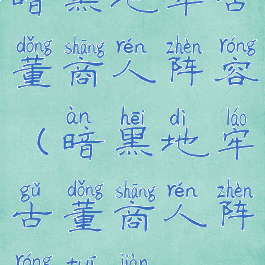 dǒng shāng rén zhèn róng
董商人阵容
àn hēi dì láo
（暗黑地牢
gǔ dǒng shāng rén zhèn
古董商人阵
róng